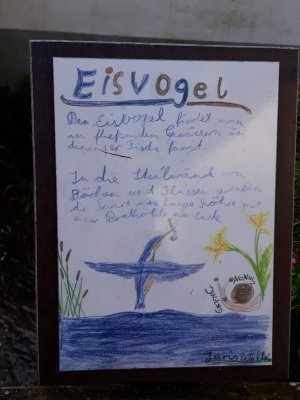 EISVOGEL
Den Eisvogel findet man
in fließenden Gewässern in
denen er Fische fängt.
In die Steilwand von
Bächen und Flüssen
die lange Röhre mit
einer Bruthöhle am Ende
AGNUS